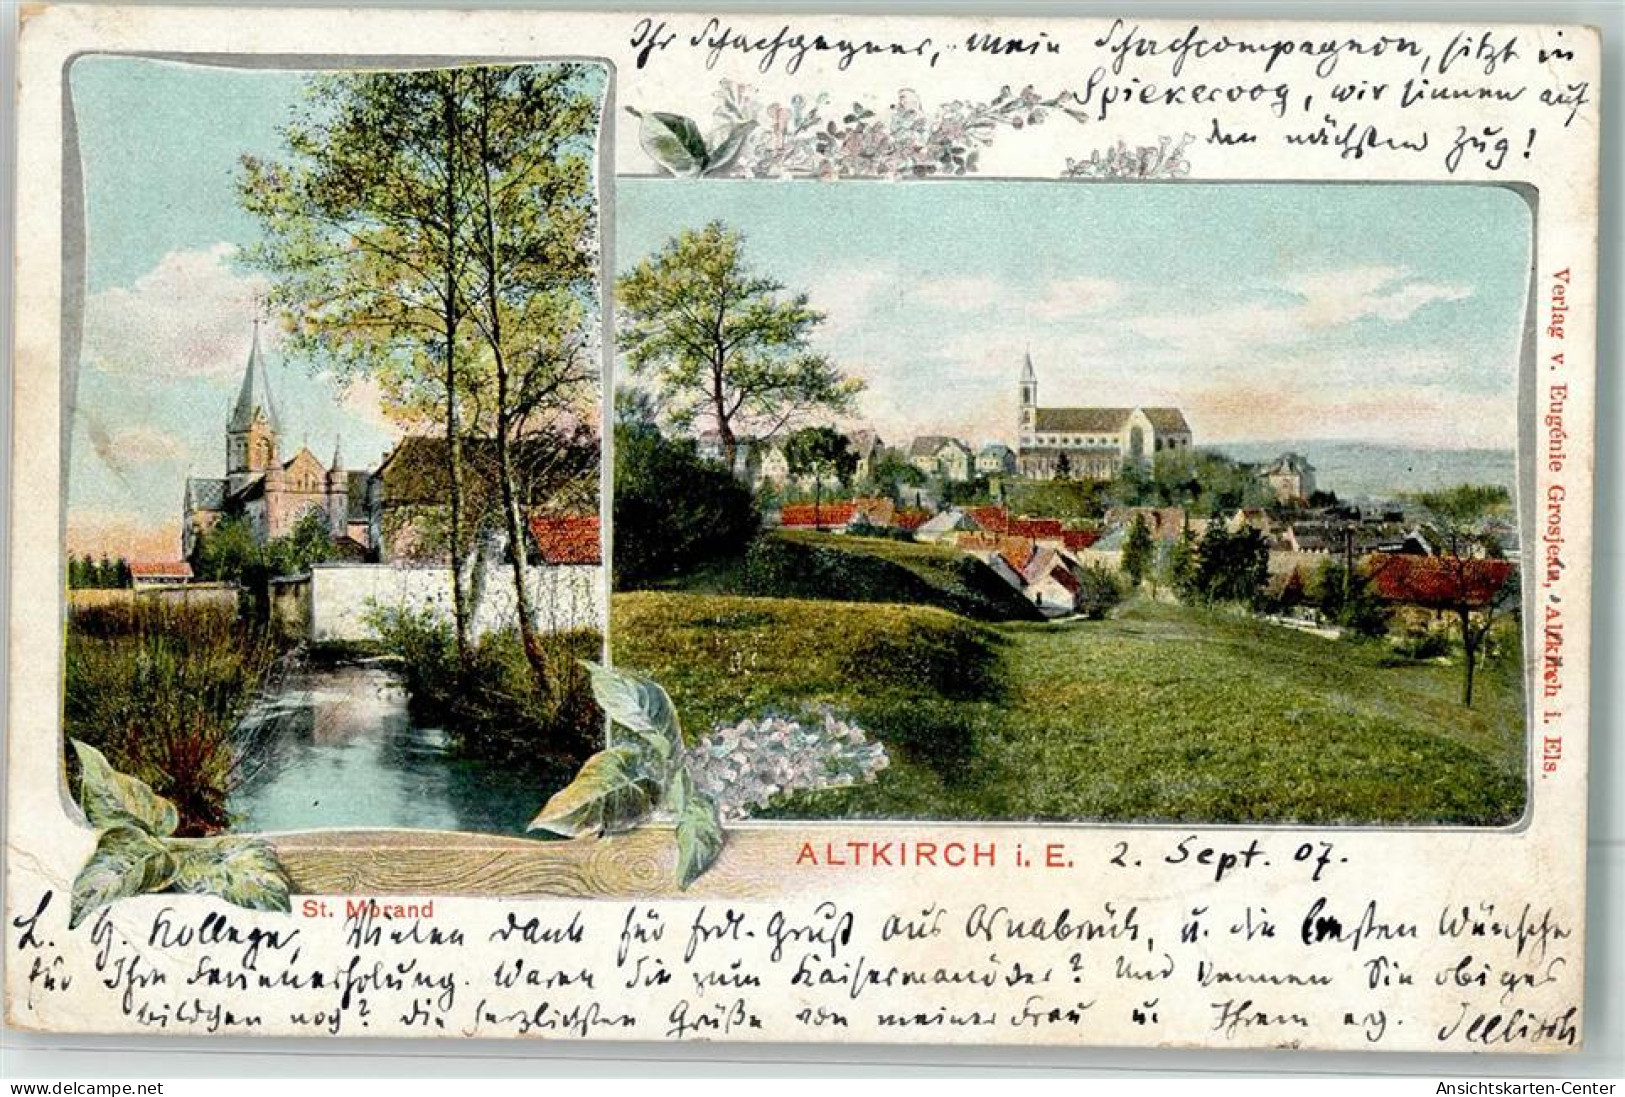 Ihr Schachgegner, mein Schachcompagnon, sitzt in
Spiekeroog, wir sinnen auf
den nächsten Zug!
Verlag v. Eugénie Grosjean, Altkirch i. Els.
ALTKIRCH i. E. 2. Sept. 07.
St. Morand
L. H. Kollege, Vielen Dank für frdl. Gruß aus Osnabrück, u. die besten Wünsche
für Ihre Ferienerholung. Waren Sie zum Kaisermanöver? Und kennen Sie obiges
bildchen noch? Die herzlichsten Grüße von meiner Frau u. Ihrem erg.
Ansichtskarten-Center